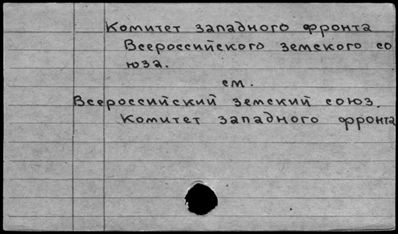 Комитет западного фронта
Всероссийского земского со
юза.
см.
Всероссийский земский союз.
Комитет западного фронта